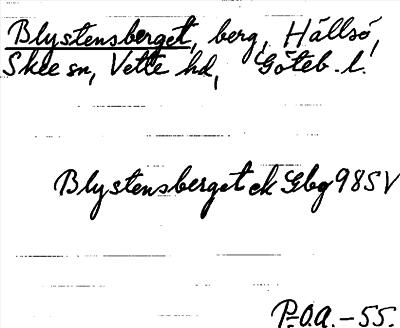 Blystensberget, berg, Hällsö,
Skee sn, Vette hd, Göteb. l.
Blystensberget ek Gbg 985 V
P.O.A. - 55.